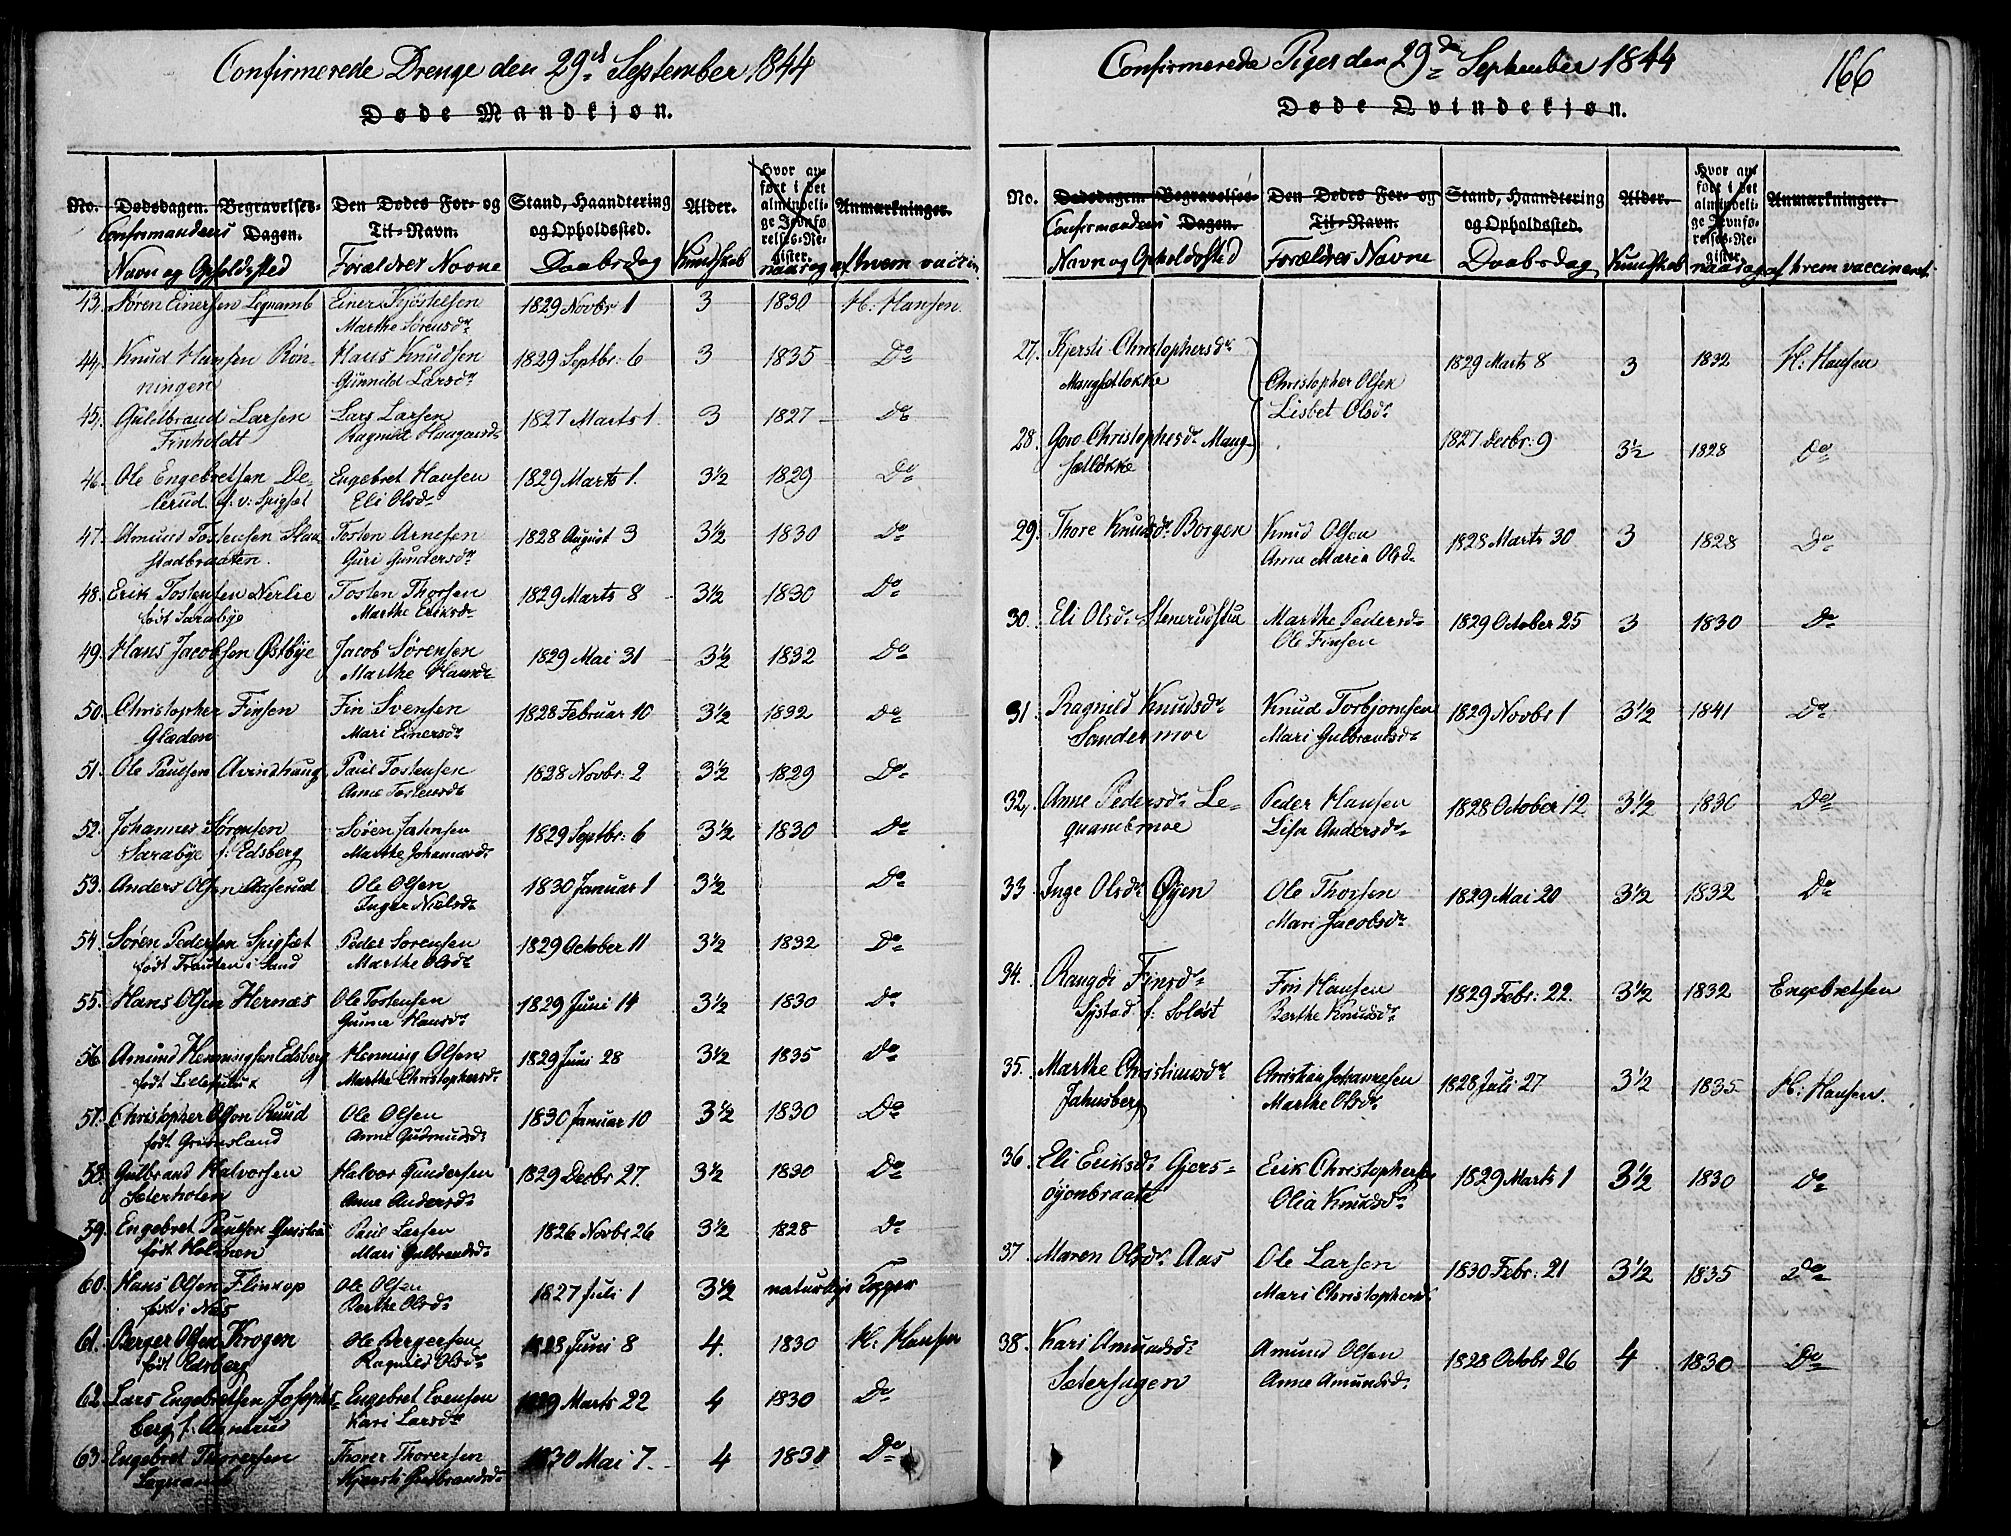 Confirmerede Drenge den 29de September 1844
Døde Mandkjøn.
No. Dødsdagen. Begravelses-Dagen. Den Dødes For- og Til-Navn. Stand, Haandtering og Opholdssted. Alder. Hvor anført i det almindelige Jevnførelses-Register. Anmærkninger.
Confirmandens Navn og Opholdssted Forældres Navne Daabsdag Kundskab naar og af hvem vaccin
43. Søren Einersen Lqvamb Einer Kjøstelsen 1829 Novbr 1 3 1830 H: Hansen.
Marthe Sørensdr
44. Knud Hansen Røn- Hans Knudsen 1829 Septbr: 6 3 1835 Do
ningen Gunnild Larsdr
45. Guldbrand Larsen Lars Larsen 1827 Marts 1. 3 1827 Do
Finholdt Ragnild Haagensdr
46. Ole Engebretsen De- Engebret Hansen 1829 Marts 1. 3½ 1829 Do
lerud. f. v: Spigset Eli Olsdr
47. Amund Tostensen Slau Tosten Arnesen 1828 August 3 3½ 1830 Do
stadbraaten. Guri Gundersdr
48. Erik Tostensen Nerlie Tosten Thorsen 1829 Marts 8 3½ 1830 Do
født Sarabye Marthe Eriksdr
49. Hans Jacobsen Østbye Jacob Sørensen 1829 Mai 31 3½ 1832 Do
Marthe Hansdr
50. Christopher Finsen Fin Svensen 1828 Februar 10 3½ 1832 Do
Gladen Mari Einersdr
51. Ole Paulsen Avindhaug Paul Tostensen 1828 Novbr: 2 3½ 1829 Do
Anne Tostensdr
52. Johannes Sørensen Søren Jahnsen 1829 Septbr: 6 3½ 1830 Do
Sarabye f: Edsberg Marthe Johannesdr
53. Anders Olsen Aaserud Ole Olsen 1830 Januar 1 3½ Do
Inger Nielsdr
54. Søren Pedersen Spigset Peder Sørensen 1829 October 11 3½ 1832 Do
født Trauten i Sand Marthe Olsdr
55. Hans Olsen Hernæs Ole Tostensen 1829 Juni 14 3½ 1830 Do
Gunne Hansdr
56. Amund Henningsen Edsberg Henning Olsen 1829 Juni 28 3½ 1835 Do
født Marthe Christophersdr
57. Christopher Olsen Ruud Ole Olsen 1830 Januar 10 3½ 1830 Do
født Grimsland Anne Gudmundsdr
58. Gulbrand Halvorsen Halvor Gundersen 1829 Decbr 27. 3½ 1830 Do
Seterholen Anne Andersdr
59. Engebret Paulsen Paul Larsen 1826 Novbr. 26 3½ 1828 Do
født Holmen Mari Gulbrandsdr
60. Hans Olsen Flinkop Ole Olsen 1827 Juli 1 3½ naturlige Kopper
født i Næs Berthe Olsdr
61. Berger Olsen Krogen Ole Bergersen 1828 Juni 8 4. 1830 H: Hansen
født Edsberg Ragnild Olsdr
62. Lars Engebretsen Josephs- Engebret Evensen 1829 Marts 22 4 1830 Do
berg f. Kari Larsdr
63. Engebret Thoresen Thorer Thorersen 1830 Mai 7. 4 1831 Do
Lqvamb Kjersti Gulbrandsdr
Confirmerede Piger den 29de September 1844
166
Døde Qvindekjøn.
No. Dødsdagen. Begravelses-Dagen. Den Dødes For- og Til-Navn. Stand, Haandtering og Opholdssted. Alder. Hvor anført i det almindelige Jevnførelses-Register. Anmærkninger.
Confirmandens Navn og Opholdssted Forældres Navne Daabsdag Kundskab naar og af hvem vaccineret
27. Kjersti Christophersdr 1829 Marts 8 3 1832 H: Hansen
Mangsetløkke Christopher Olsen
Lisbet Olsdr
28. Goro Christophersdr Mang- 1827 Decbr: 9 3½ 1828 Do
setløkke
29. Thore Knudsdr Borgen Knud Olsen 1828 Marts 30 3 1828 Do
Anne Maria Olsdr
30. Eli Olsdr Stenerudstua Marthe Pedersdr 1829 October 25 3 1830 Do
Ole Finsen
31. Ragnild Knudsdr Knud Torbjørnsen 1829 Novbr 1 3½ 1841 Do
Sandermoe Mari Gulbrandsdr
32. Anne Pedersdr Le- Peder Hansen 1828 October 12 3½ 1830 Do
quambmoe Lisa Andersdr
33 Inge Olsdr Øyen Ole Thorsen 1829 Mai 20 3½ 1832 Do
Mari Jacobsdr
34. Rangdi Finsdr Fin Hansen 1829 Febr: 22. 3½ 1832 Engebretsen
Systad f: Soløst Berthe Knudsdr
35. Marthe Christiansdr Christian Johannesen 1828 Juli 27 3½ 1835 H: Hansen.
Jahnsberg Marthe Olsdr
36. Eli Eriksdr Gjers- Erik Christophersen 1829 Marts 1 3½ 1830 Do
øyenbraate Olia Knudsdr
37 Maren Olsdr Aas Ole Larsen 1830 Febr: 21 3½ 1835 Do
Mari Christophersdr
38. Kari Amundsdr Amund Olsen 1828 Octobr 26 4 1830 Do
Seterhagen Anne Amundsdr